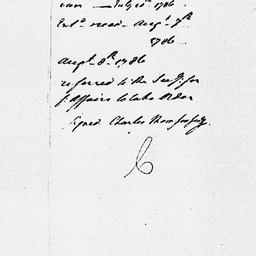 July 10th 1786
Ent.d read Aug.t 7th
1786
Aug.t 8th 1786
referred to the Secy. for
f. Affairs to take Order
signed Charles Thomson Secy.